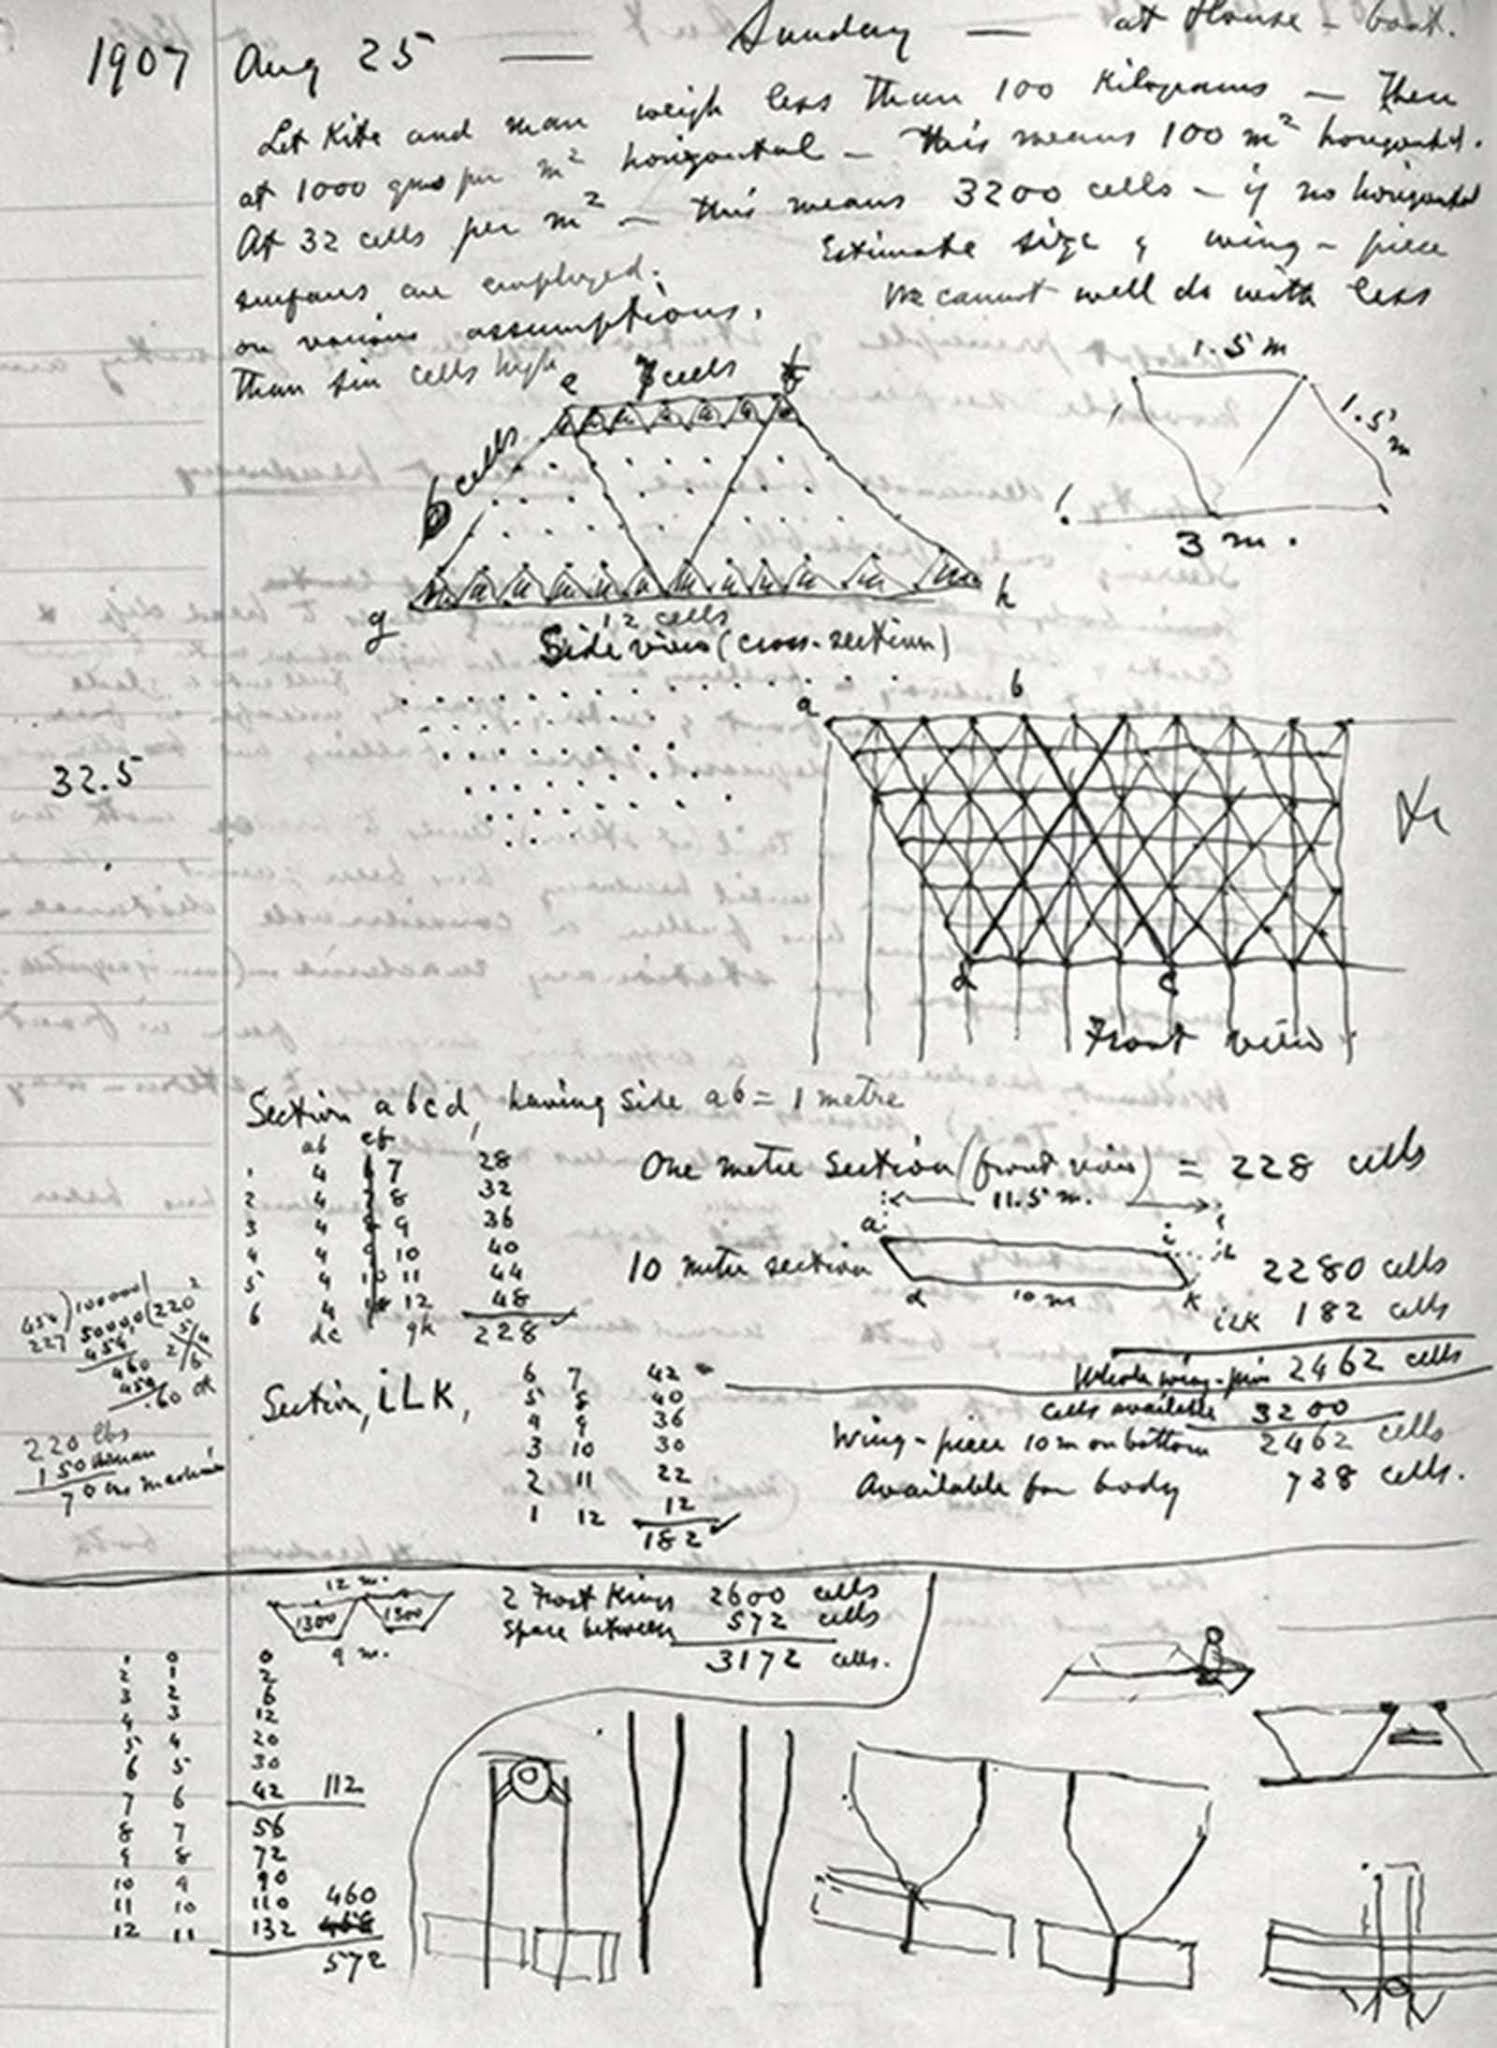 1907 Aug 25 — Sunday — at House-boat.
Let Kite and man weigh less than 100 Kilograms — Then
at 1000 gms per m² horizontal — this means 100 m² horizontal.
At 32 cells per m² — this means 3200 cells — if no horizontal
surfaces are employed. Estimate size of wing-piece
on various assumptions. We cannot well do with less
than six cells high
e 7 cells f
6 cells
g 12 cells h
Side view (cross-section)
1.5 m
1.5 m
3 m.
32.5
a b
d c
Front view
Section abcd, having side ab = 1 metre
ab ef
1 4 7 28
2 4 8 32
3 4 9 36
4 4 10 40
5 4 11 44
6 4 12 48
dc gk 228
One metre section (front view) = 228 cells
11.5 m.
a i L
10 meter section 2280 cells
d 10 m K
iLK 182 cells
Whole wing-piece 2462 cells
cells available 3200
Wing-piece 10 m on bottom 2462 cells
Available for body 738 cells.
Section, iLK,
6 7 42
5 8 40
4 9 36
3 10 30
2 11 22
1 12 12
182
220 lbs
150 man
70 lbs machine
12 m.
1300 1300
9 m.
2 Frost Kings 2600 cells
Space between 572 cells
3172 cells.
1 0 0
2 1 2
3 2 6
4 3 12
5 4 20
6 5 30
7 6 42 112
8 7 56
9 8 72
10 9 90
11 10 110 460
12 11 132
572